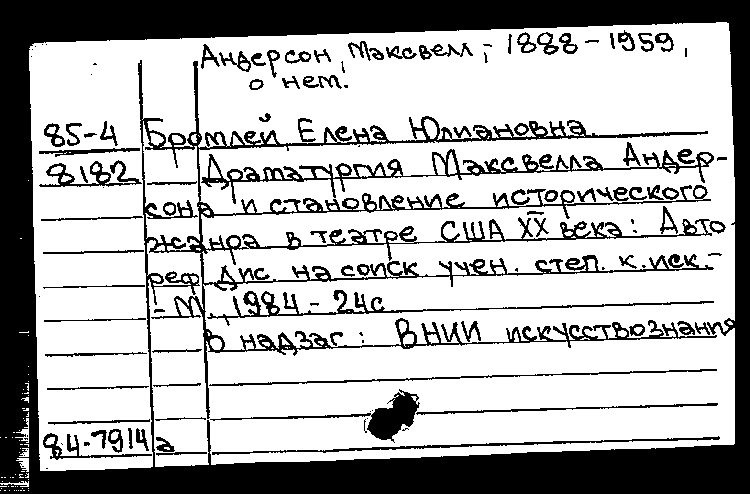 Андерсон, Максвелл, - 1888-1959,
о нем.
85-4 Бромлей, Елена Юлиановна.
8182 Драматургия Максвелла Андер-
сона и становление исторического
жанра в театре США XX века: Авто-
реф. дис. на соиск. учен. степ. к. иск. -
- М., 1984. - 24с.
В надзаг: ВНИИ искусствознания
84-7914а